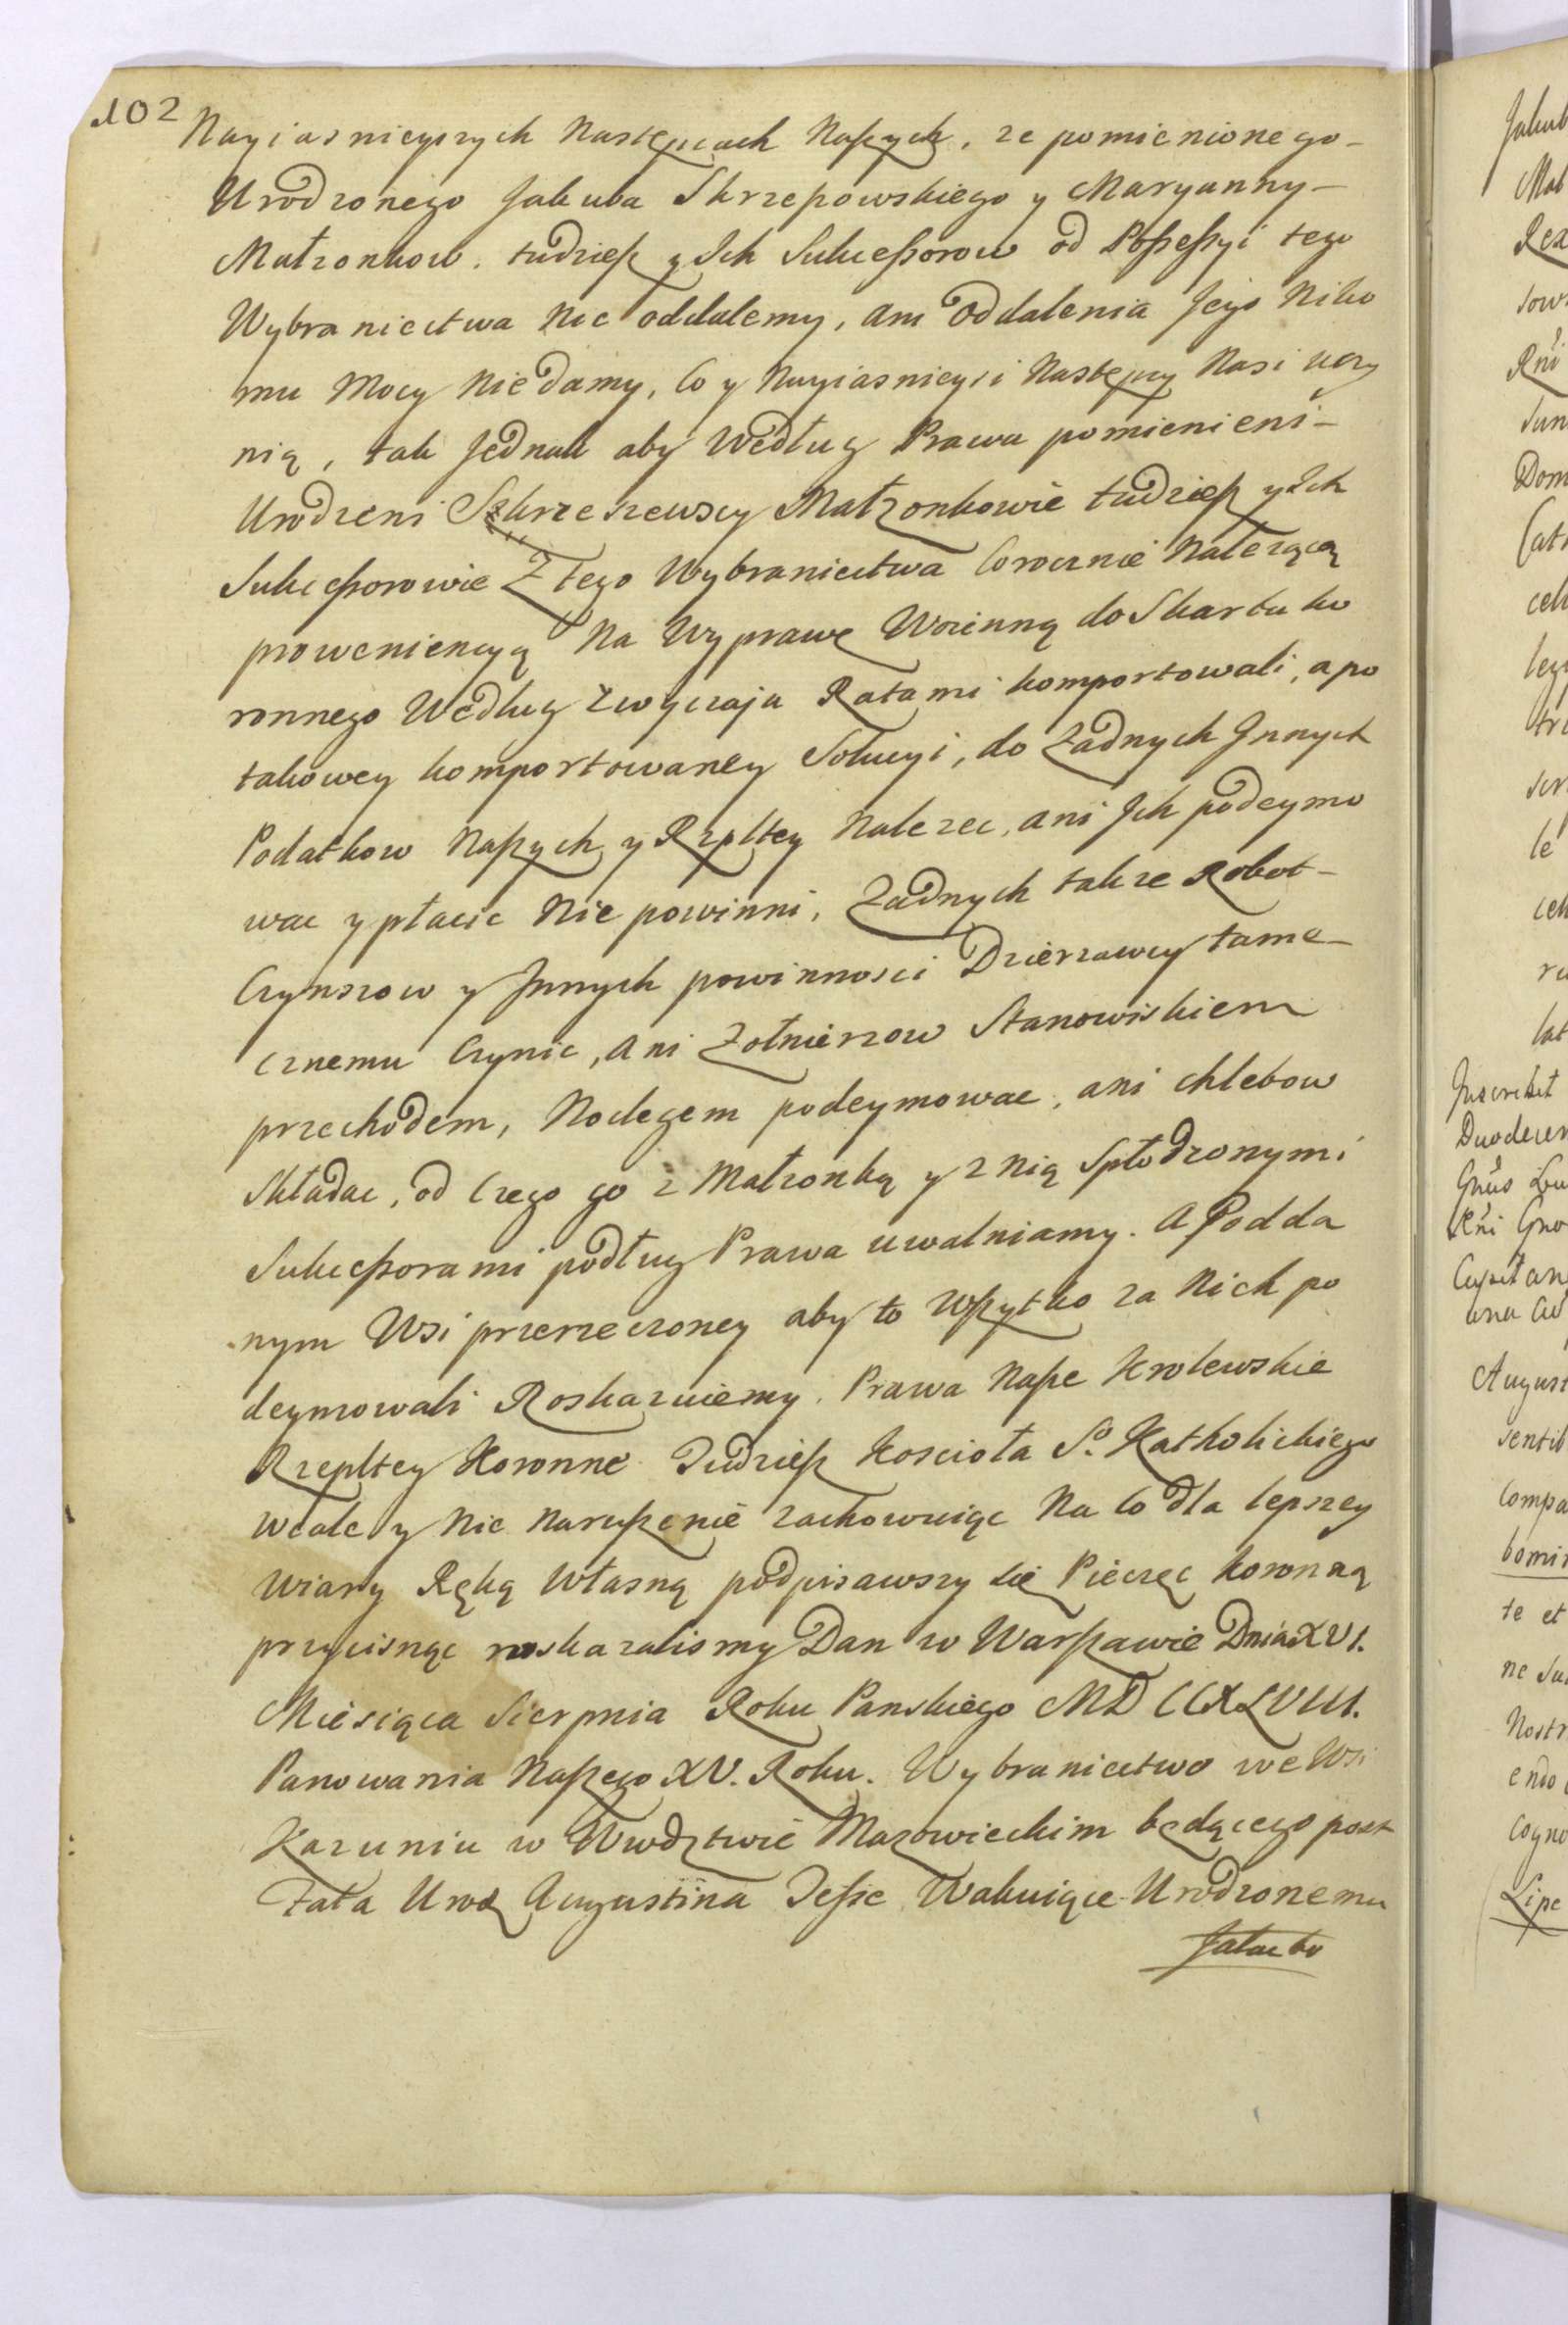 102
Nayiasnieyszych Następcach Naszych, ze pomienionego
Urodzonego Jakuba Skrzeszowskiego y Maryanny
Małzonkow, tudziesz y Ich Sukceßorow od Poßeßyi tego
Wybraniectwa Nie oddalemy, ani oddalenia Jego Niko
mu Mocy Nie damy, Co y Nayiasnieysi Następcy Nasi uczy
nią, tak Jednak aby Według Prawa pomienieni
Urodzeni Skrzeszewscy Małzonkowie tudziesz y Ich
Sukceßorowie Z tego Wybraniectwa Corocznie Nalezącą
proweniencyą Na Wyprawę Woienną do Skarbu ko
ronnego Według zwyczaju Ratami komportowali, a po
takowey komportowaney Solucyi, do Zadnych Innych
Podatkow Naszych y Rzpltey Nalezec, ani Ich podeymo
wac y płacic Nie powinni, Zadnych takze Robot
Czynszow y Innych powinnosci Dzierzawcy tame
cznemu Czynic, ani Zołnierzow Stanowiskiem
przechodem, Noclegem podeymowac, ani chlebow
Składac, od Czego go z Małzonką y z nią Spłodzonymi
Sukceßorami podług Prawa uwalniamy. A Podda
nym Wsi przerzeczoney aby to Wszytko za Nich po
deymowali Roskazuiemy. Prawa Nasze Krolewskie
Rzepltey Koronne Tudziesz Koscioła S. Katholickiego
Wcale y Nie Naruszenie zachowuiąc Na Co dla lepszey
Wiary Ręką Własną podpisawszy się Pieczęc koronną
przycisnąc roskazalismy Dan w Warszawie Dnia XVI.
Miesiąca Sierpnia Roku Panskiego MDCCXLVIII.
Panowania Naszego XV. Roku. Wybraniectwo we Wsi
Kazuniu w Wwdztwie Mazowieckim będącego post
Fata Urod Augustina Jesze Wakuiące Urodzonemu
Jakubo
Jakub
Mał
Rex
sow
Rni
Sun
Dom
Cat
cel
leg
tri
scr
le
cel
ru
lat
Inscribit
Duodecem
Gnus
Rni Gno
Capitan
ana
August
sentib
compa
bomi
te et
ne su
Nostr
endo
cogno
Lipc